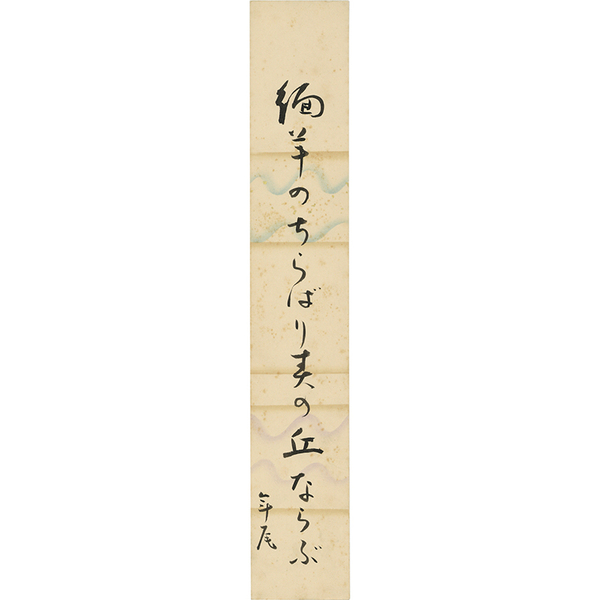 緬羊のちらばり春の丘ならぶ
年尾